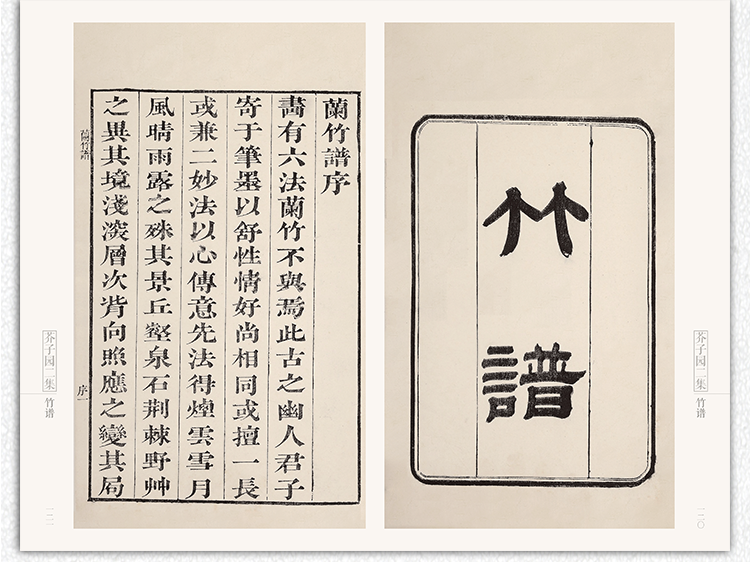 竹譜
芥子园二集 竹谱
一二〇
蘭竹譜序
畵有六法蘭竹不與焉此古之幽人君子
寄于筆墨以舒性情好尚相同或擅一長
或兼二妙法以心傳意先法得煙雲雪月
風晴雨露之殊其景丘壑泉石荆棘野艸
之異其境淺深層次背向照應之變其局
蘭竹譜
序一
芥子园二集 竹谱